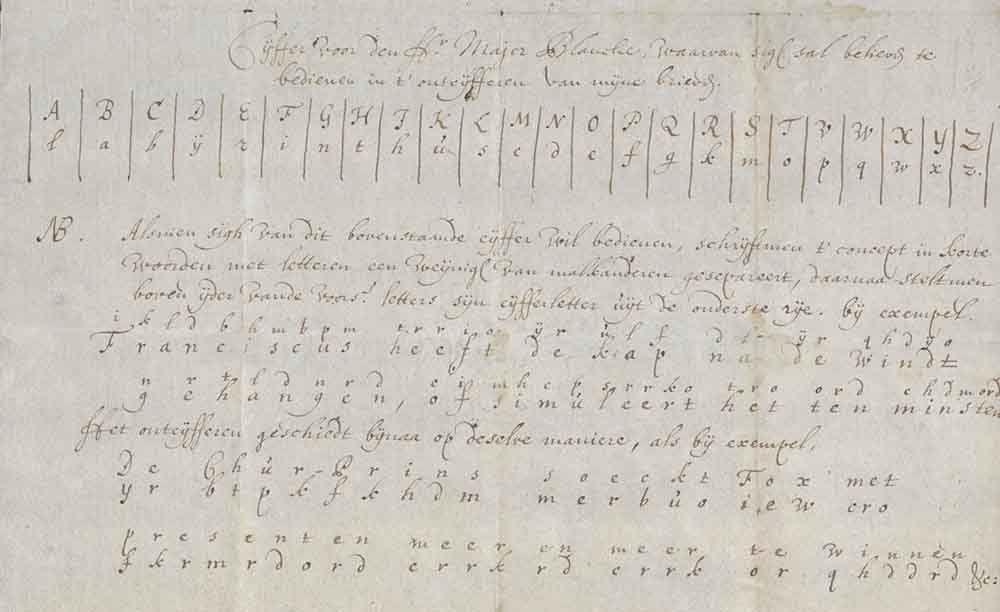 Cijffer voor den Hr. Major Blanche, waarvan sigh sal believen te
bedienen in t' ontcijfferen van mijne brieven.
A B C D E F G H J K L M N O P Q R S T V W X Y Z
l a b ÿ r i n t h ů s c d e f g k m o p q w x z.
NB. Alsmen sigh van dit bovenstaande cijffer wil bedienen, schrijftmen t' concept in korte
woorden met letteren een weijnigh van malkanderen gesepareert, daarnaa steltmen
boven ijder vande voors. letters sijn cijfferletter uijt de onderste rije. bij exempel.
i k l d b h m b p m t r r i o ÿ r ů l f d l ÿ r q h d ÿ o
F r a n c i s c u s h e e f t d e k a p n a d e w i n d t
n r t l d n r d e i m h c p s r r k o t r o o r d c h d m o r d
g e h a n g e n, o f s i m u l e e r t h e t t e n m i n s t e n
Het ontcijfferen geschiedt bijnaa op deselve maniere, als bij exempel,
D e C h u r - P r i n s s o e c k t F o x m e t
ÿ r b t p k f k h d m m e r b ů o i e w c r o
p r e s e n t e n m e e r e n m e e r t e w i n n e n
f k r m r d o r d c r r k r d c r r k o r q h d d r d &c: